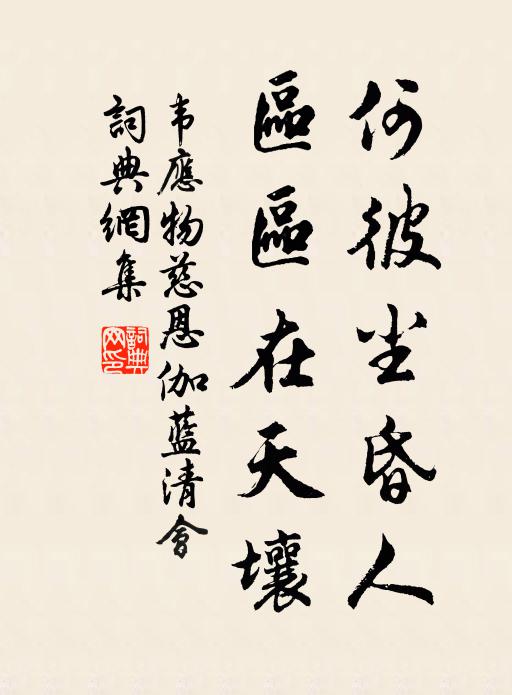 何彼尘昏人
區區在天壤
韦應物慈恩伽藍清會
詞典網集
詞典網印